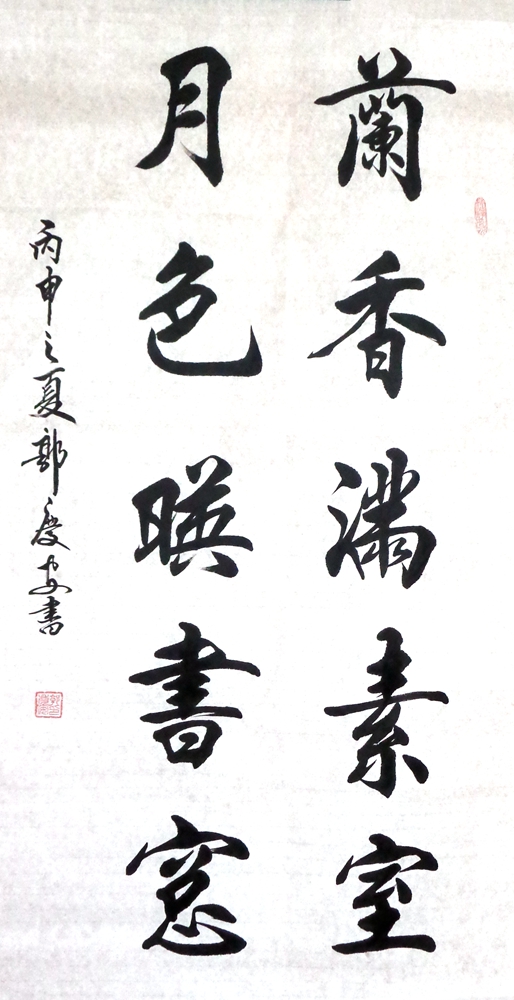 蘭香滿素室
月色暎書窓
丙申之夏郭慶安書